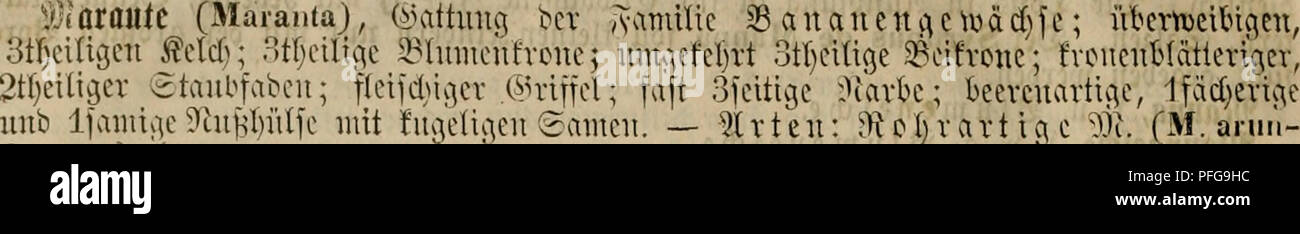 Marante (Maranta), Gattung der Familie Bananengewächse; überweibigen,
3theiligen Kelch; 3theilige Blumenkrone; umgekehrt 3theilige Beikrone; kronenblätteriger,
2theiliger Staubfaden; fleischiger Griffel; fast 3seitige Narbe; beerenartige, 1fächerige
und 1samige Nußhülse mit kugeligen Samen. — Arten: Rohrartige M. (M. arun-
alamy
Image ID: PFG9HC
www.alamy.com